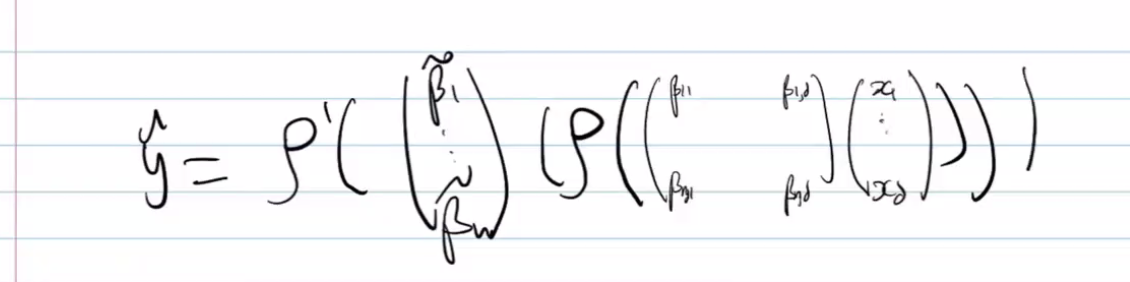 ŷ = ρ'( ( β̃₁ ⋮ β̃ₙ ) ( ρ ( ( β₁₁ β₁,d βₙ₁ βₙ,d ) ( x₁ ⋮ x_d ) ) ) )